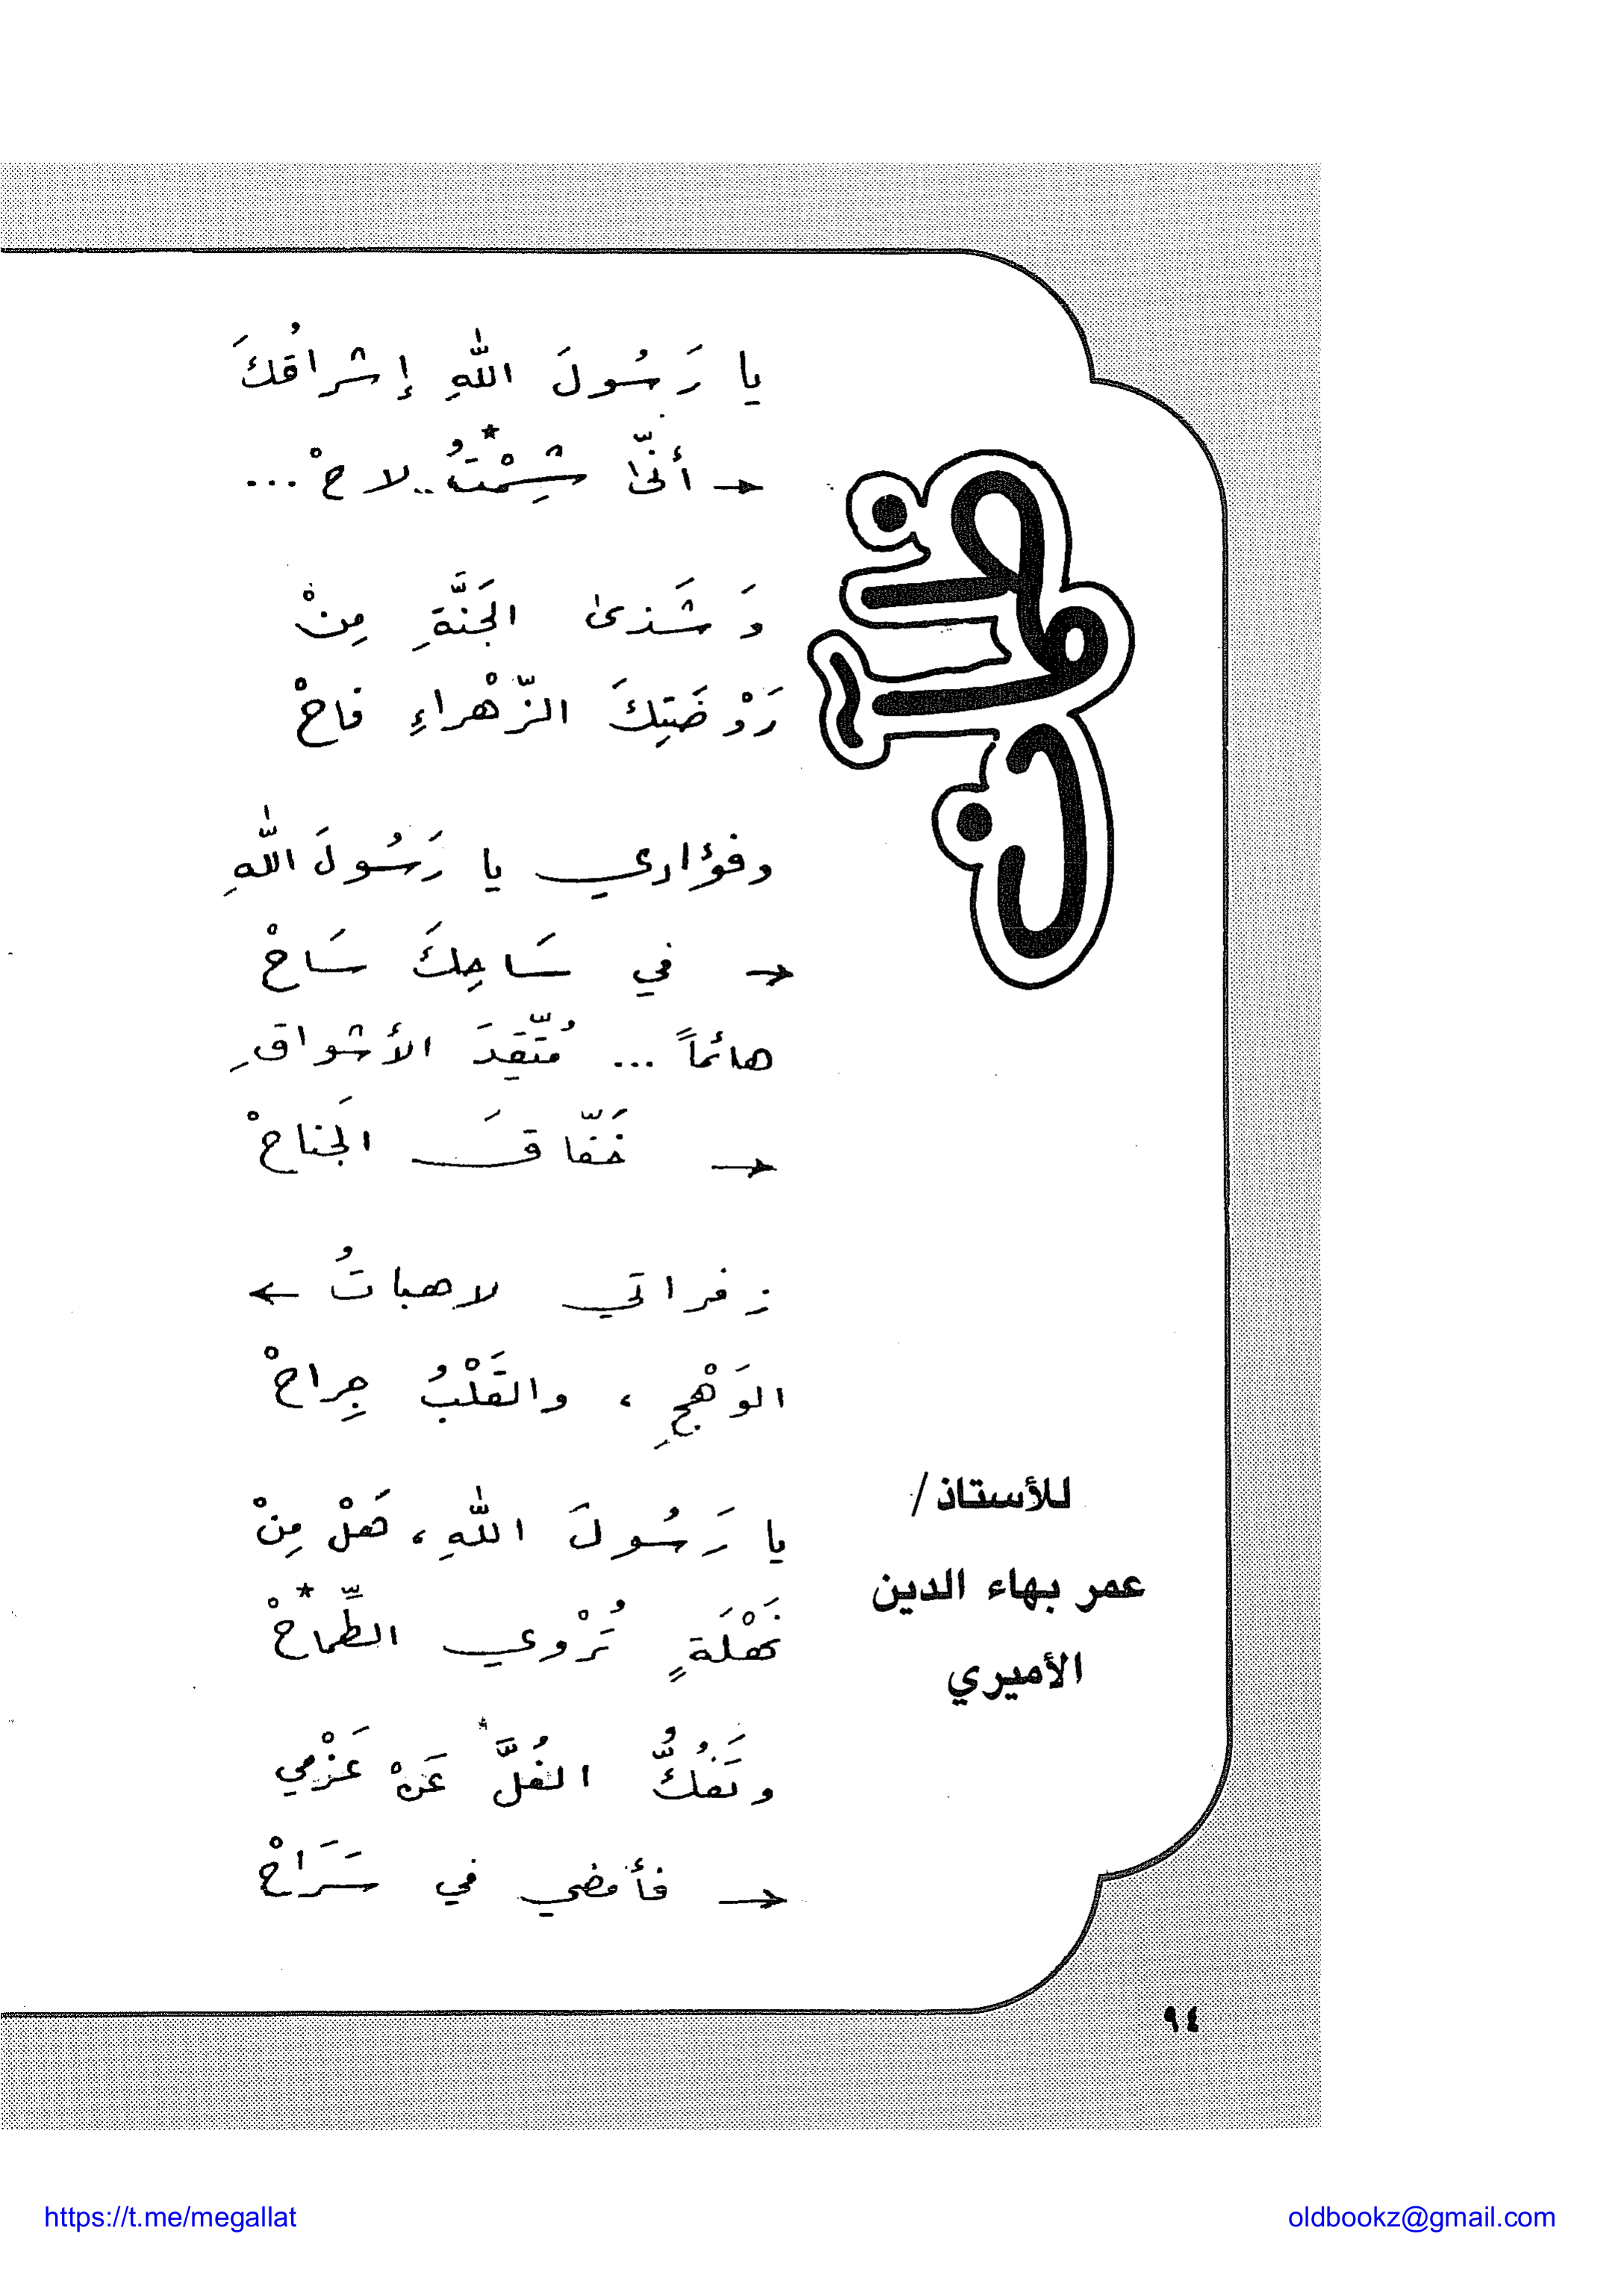 يا رَسُولَ اللّٰهِ إشراقُكَ
← أنّىٰ شِمْتُ* .. لاحْ ...
وَشَذىٰ الجَنَّةِ مِنْ
رَوْضَتِكَ الزّهْراءِ فاحْ
وفؤادي يا رَسُولَ اللّٰهِ
← في سَاحِكَ سَاحْ
هائماً ... مُتّقِدَ الأشواقِ
← خَفّاقَ الجَناحْ
زفراتي لاهباتُ ←
الوَهْجِ ، والقَلْبُ جِراحْ
يا رَسُولَ اللّٰهِ ، هَلْ مِنْ
نَهْلَةٍ تُرْوي الطِّماحْ*
وتَفُكُّ الغُلَّ* عَنْ عَزْمي
← فأمضي في سَرَاحْ
للأستاذ/
عمر بهاء الدين
الأميري
٩٤
https://t.me/megallat
oldbookz@gmail.com